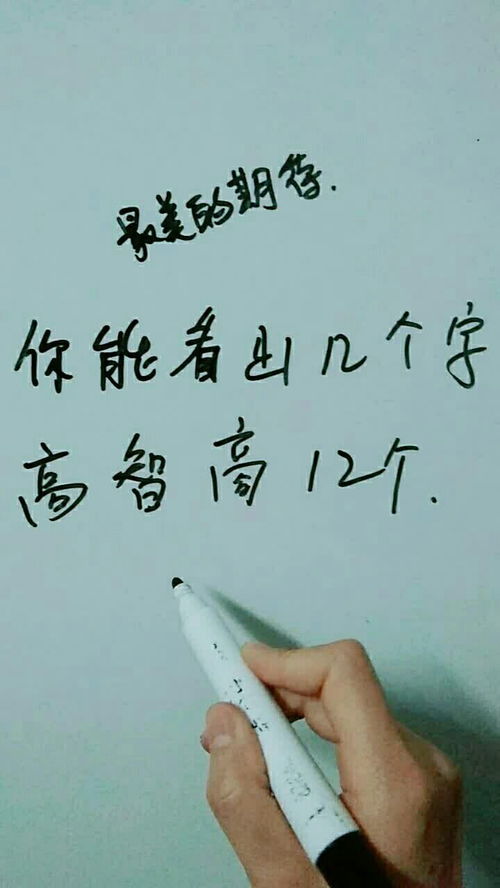 最美的期待.
你能看出几个字
高智商12个.